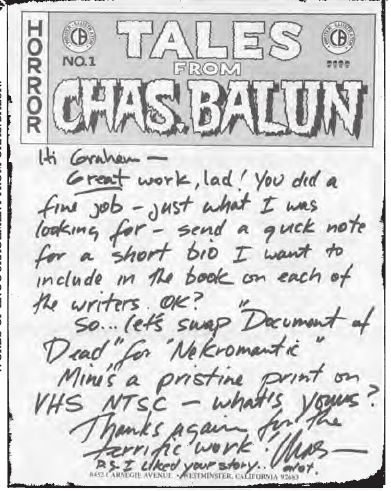 HORROR
TALES
FROM
CHAS. BALUN
NO.1
CB
CB
Hi Graham —
Great work, lad! You did a
fine job - just what I was
looking for - send a quick note
for a short bio I want to
include in the book on each of
the writers. OK?
So... let's swap "Document of
Dead" for "Nekromantic"
Mine's a pristine print on
VHS NTSC - what's yours?
Thanks again for the
terrific work! Chas —
8452 CARNEGIE AVENUE • WESTMINSTER, CALIFORNIA 92683
P.S. I liked your story..